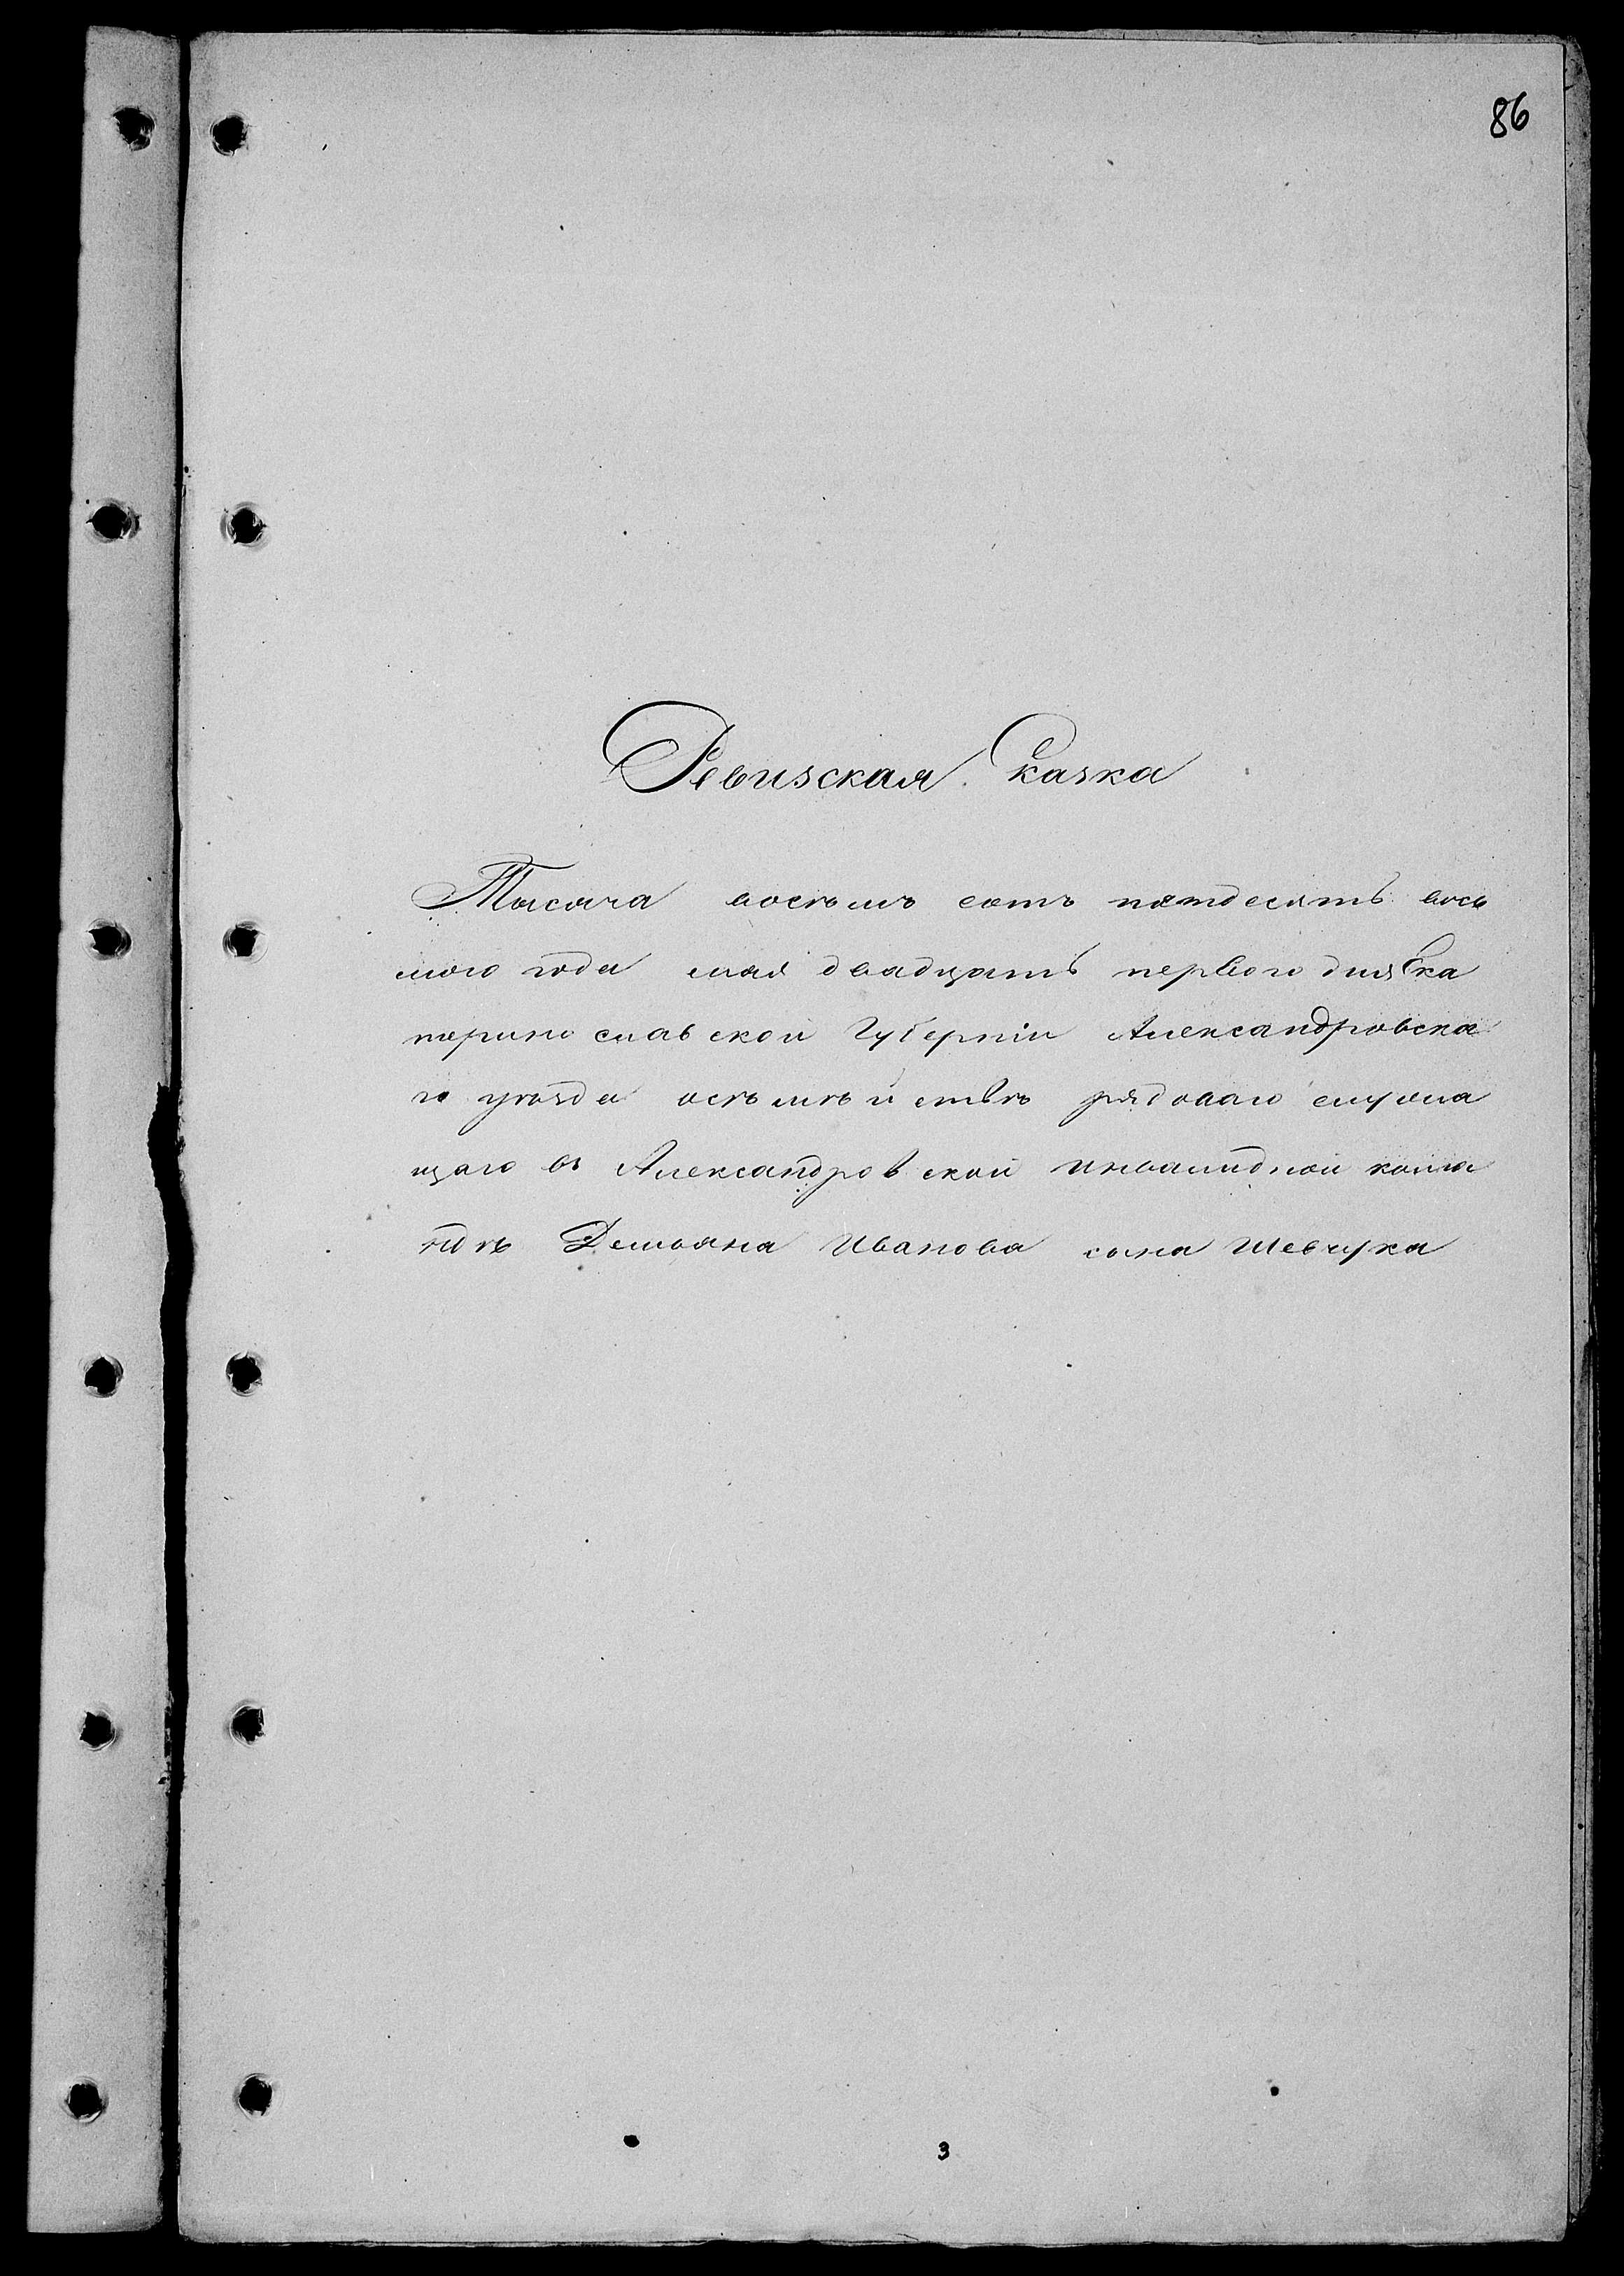 86
Ревизская Сказка
Тысяча восемъ сотъ пятдесятъ вось
мого года мая двадцать первого дня Ека
терино славской Губерніи Александровска
го уѣзда о семѣйствѣ рядоваго служа
щаго въ Александровской инвалидной кома
ндѣ Демьяна Иванова сына Шевчука
3